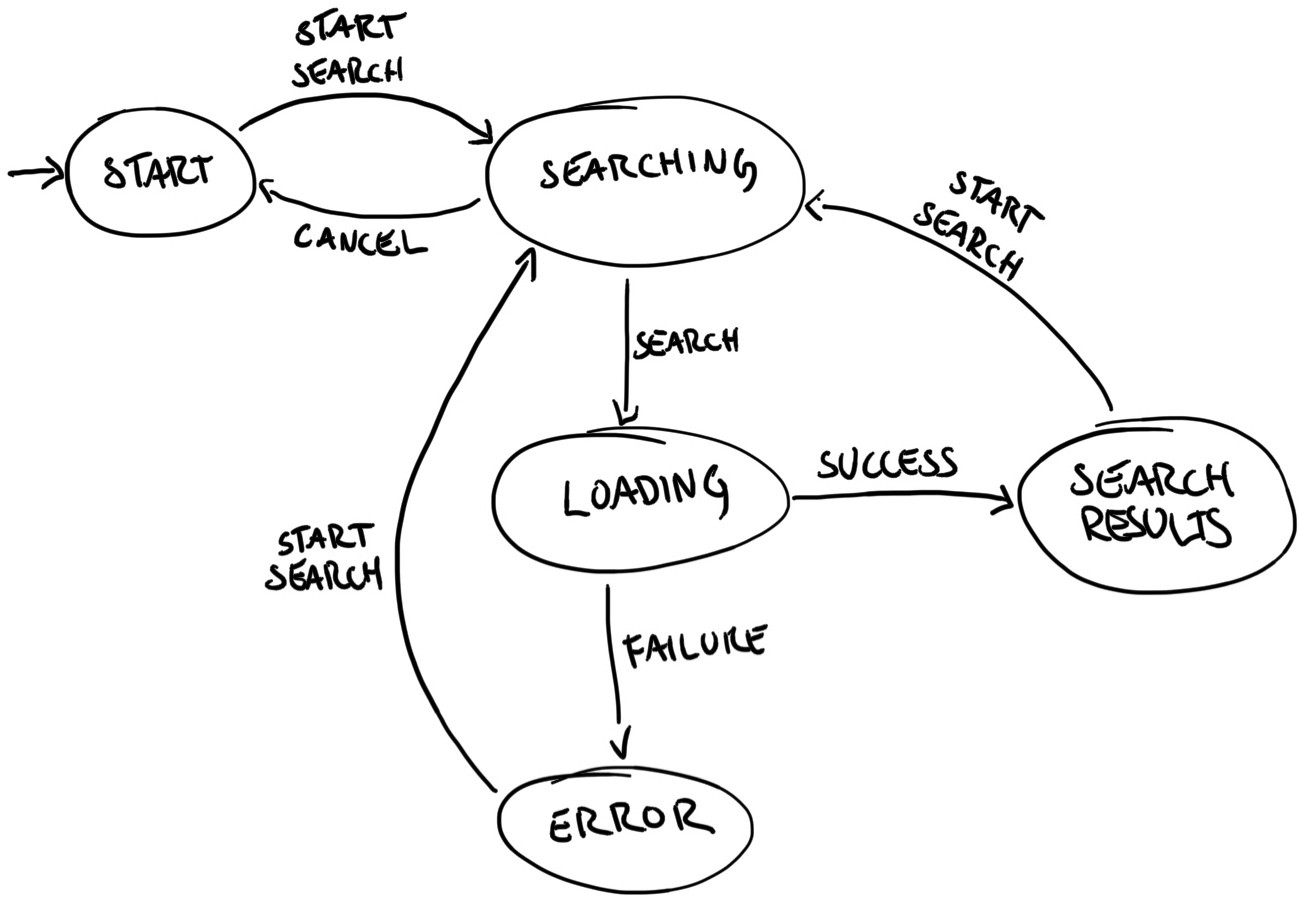 START
SEARCH
START
SEARCHING
CANCEL
START
SEARCH
SEARCH
LOADING
SUCCESS
SEARCH
RESULTS
START
SEARCH
FAILURE
ERROR